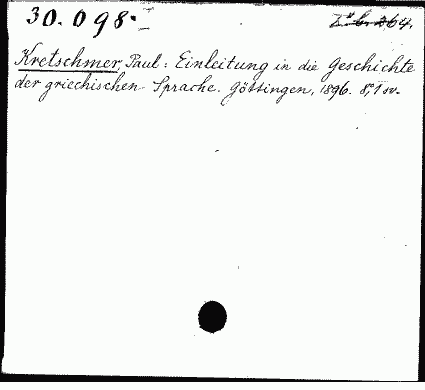 30.098.
Kretschmer, Paul: Einleitung in die Geschichte
der griechischen Sprache. Göttingen, 1896. 8, 1 sv.